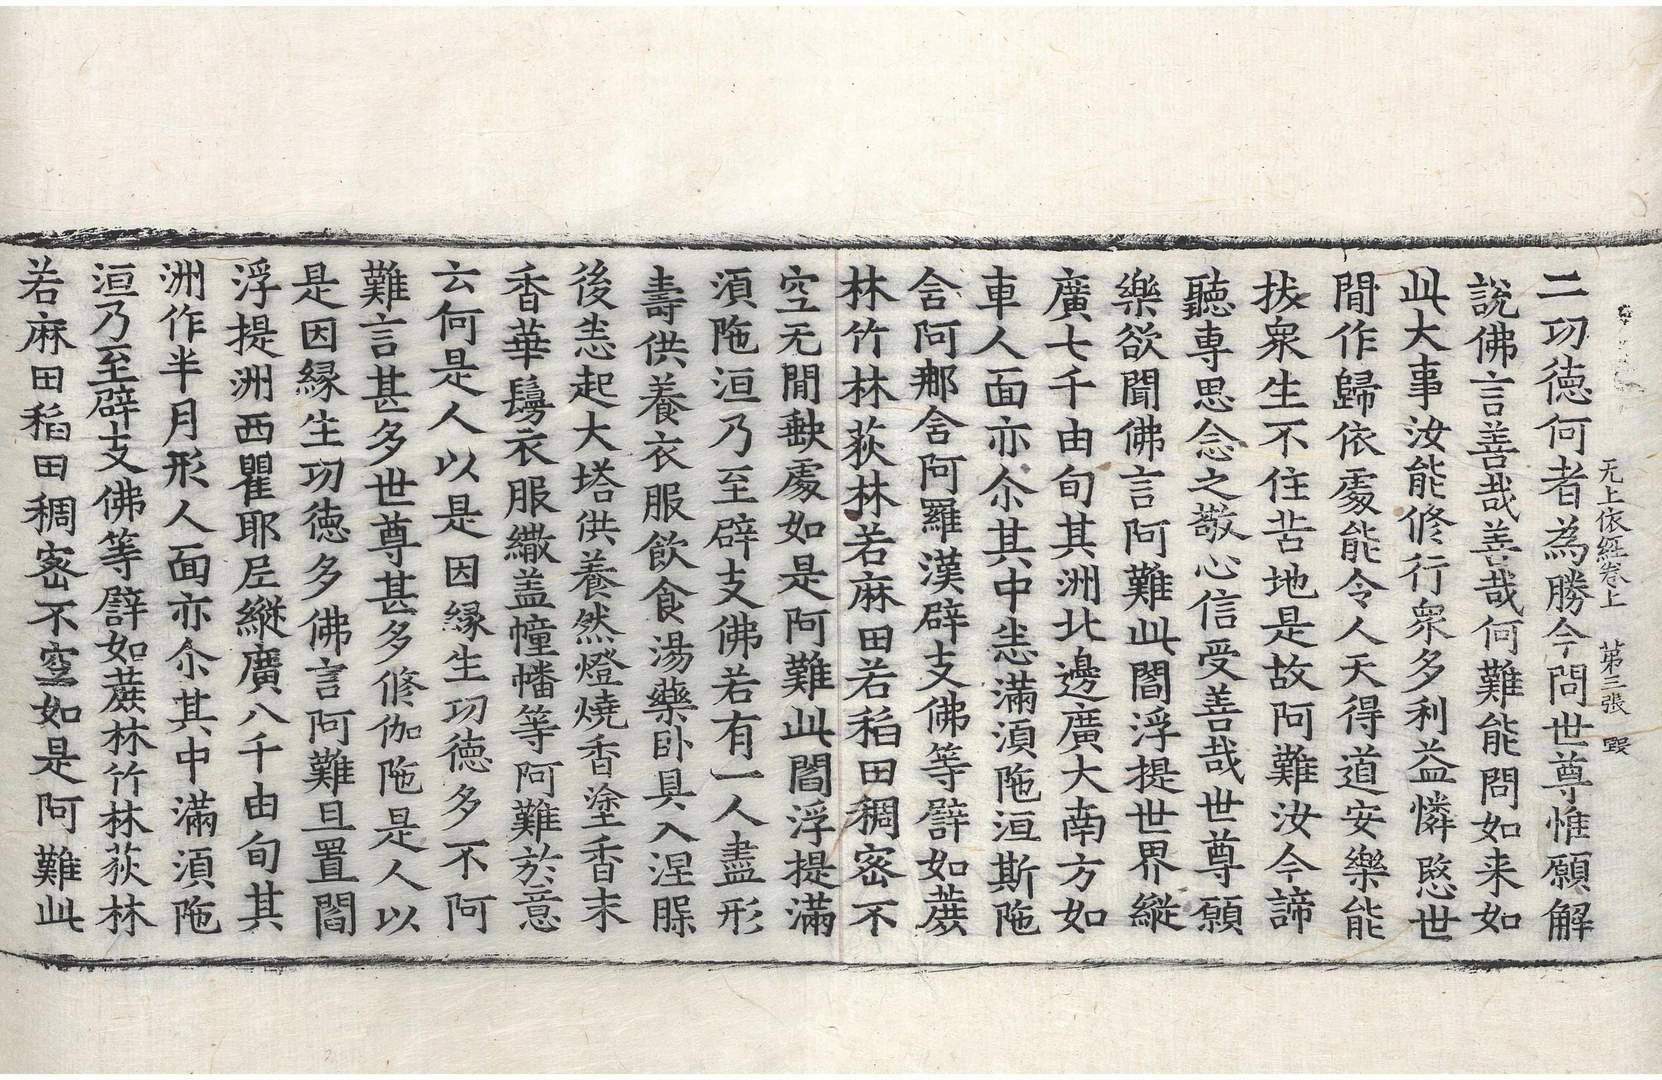 无上依経卷上　第三張　毀
二功徳何者為勝今問世尊惟願解
說佛言善哉善哉何難能問如来如
此大事汝能修行衆多利益憐愍世
閒作歸依處能令人天得道安樂能
拔衆生不住苦地是故阿難汝今諦
聽専思念之敬心信受善哉世尊願
樂欲聞佛言阿難此閻浮提世界縱
廣七千由旬其洲北邊廣大南方如
車人面亦尒其中悉滿湏陁洹斯陁
含阿那含阿羅漢辟支佛等譬如蔗
林竹林荻林若麻田若稻田稠密不
空无閒缺處如是阿難此閻浮提滿
湏陁洹乃至辟支佛若有一人盡形
壽供養衣服飲食湯藥卧具入涅槃
後悉起大塔供養然燈燒香塗香末
香華鬘衣服繖盖幢幡等阿難於意
云何是人以是因縁生功徳多不阿
難言甚多世尊甚多修伽陁是人以
是因縁生功徳多佛言阿難且置閻
浮提洲西瞿耶尼縱廣八千由旬其
洲作半月形人面亦尒其中滿湏陁
洹乃至辟支佛等譬如蔗林竹林荻林
若麻田稻田稠密不空如是阿難此